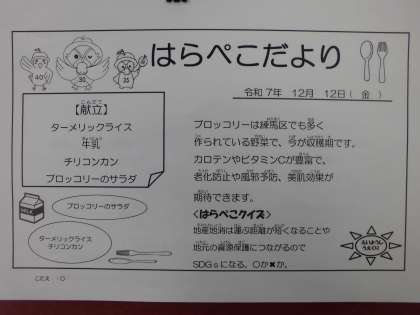 はらぺこだより
令和７年 12月 12日（ 金 ）
【献立】
ターメリックライス
牛乳
チリコンカン
ブロッコリーのサラダ
ブロッコリーのサラダ
ターメリックライス
チリコンカン
ブロッコリーは練馬区でも多く
作られている野菜で、今が収穫期です。
カロテンやビタミンCが豊富で、
老化防止や風邪予防、美肌効果が
期待できます。
＜はらぺこクイズ＞
地産地消は運ぶ距離が短くなることや
地元の資源保護につながるので
SDGｓになる、○か✖か。
こたえ ○